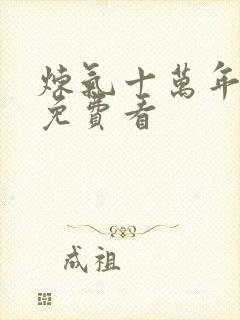 煉氣十萬年
免費看
成祖